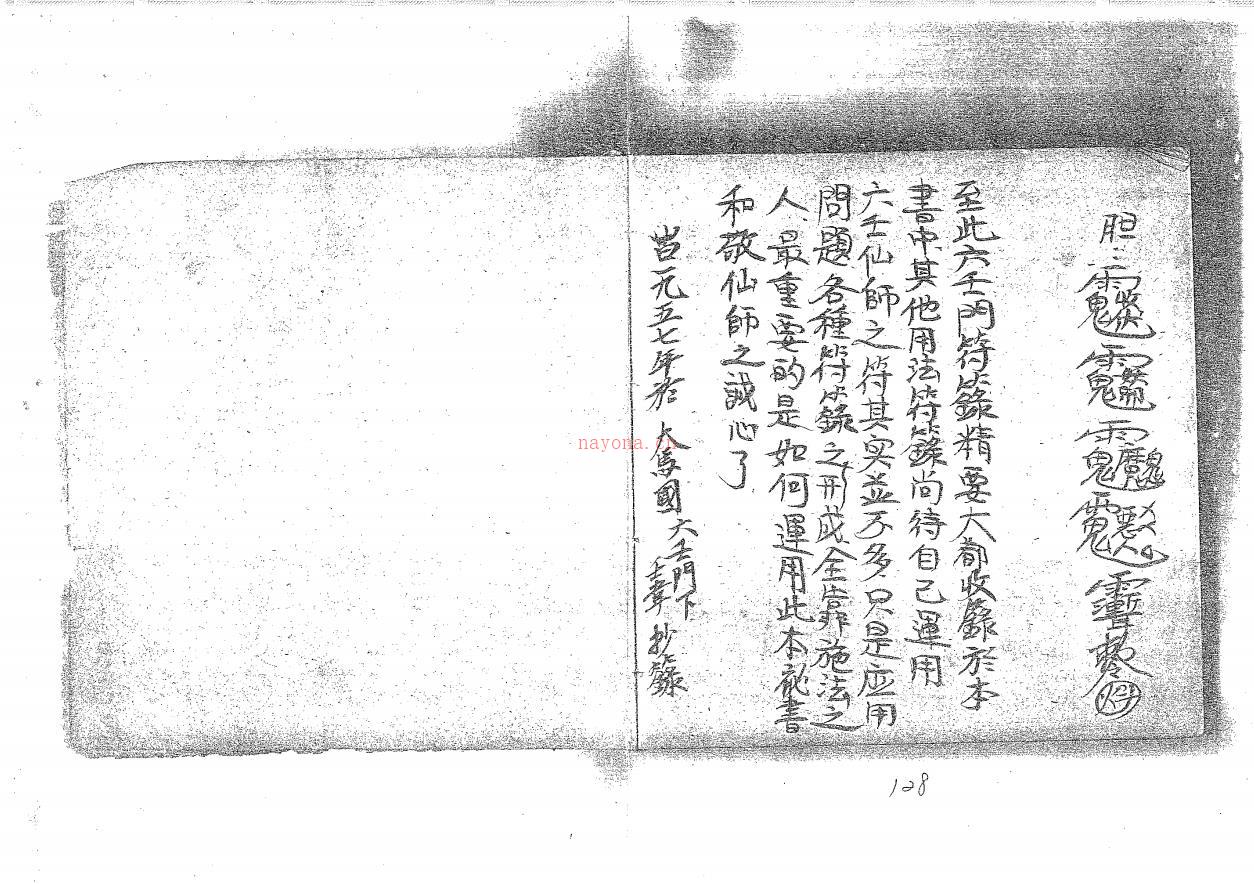 胆
至此六壬門符籙精要大都收錄於本
書中其他用法符籙尚待自己運用
六壬仙師之符其实並不多只是应用
問題各種符籙之形成全靠施法之
人最重要的是如何運用此本秘書
和敬仙師之誠心了
元五七年於 大馬國六壬門下 抄錄
nayona.cn
128